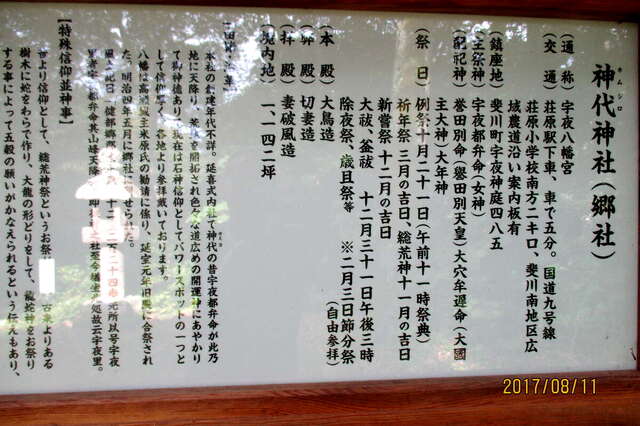 カムシロ
神代神社(郷社)
(通 称) 宇夜八幡宮
(交 通) 荘原駅下車、車で五分。国道九号線
荘原小学校南方二キロ、斐川南地区広
域農道沿い案内板有
(鎮座地) 斐川町宇夜神庭四八五
(主祭神) 宇夜都弁命(女神)
(配祀神) 誉田別命(誉田別天皇)大穴牟遅命(大國
主大神)大年神
(祭 日) 例祭十月二十一日(午前十一時祭典)
祈年祭 三月の吉日、総荒神十一月の吉日
新嘗祭 十二月の吉日
大祓、釜祓 十二月三十一日午後三時
除夜祭、歳旦祭等 ※二月三日節分祭
(自由参拝)
(本 殿) 大鳥造
(幣 殿) 切妻造
(拝 殿) 妻破風造
(境内地) 一、一四二坪
本社の創建年代不詳。延喜式内社で神代の昔宇夜都弁命が此乃
地に天降り、荒地を開拓され色々な道広めの開運神にあやかり
て御神徳あり、現在は石神信仰としてパワースポットの一つと
して信仰厚く、各地より参拝戴いております。
八幡は高瀬城主米原氏の勧請に係り、延宝元年旧殿に合祭され
た。明治四年五月に郷社に列せられた。
【特殊信仰並神事】
古より信仰として、総荒神祭というお祭 古来よりある
樹木に蛇をわらで作り、大龍の形どりをして、龍蛇神をお祭り
する事によって五穀の願いがかなえられるという伝えもあり、
2017/08/11